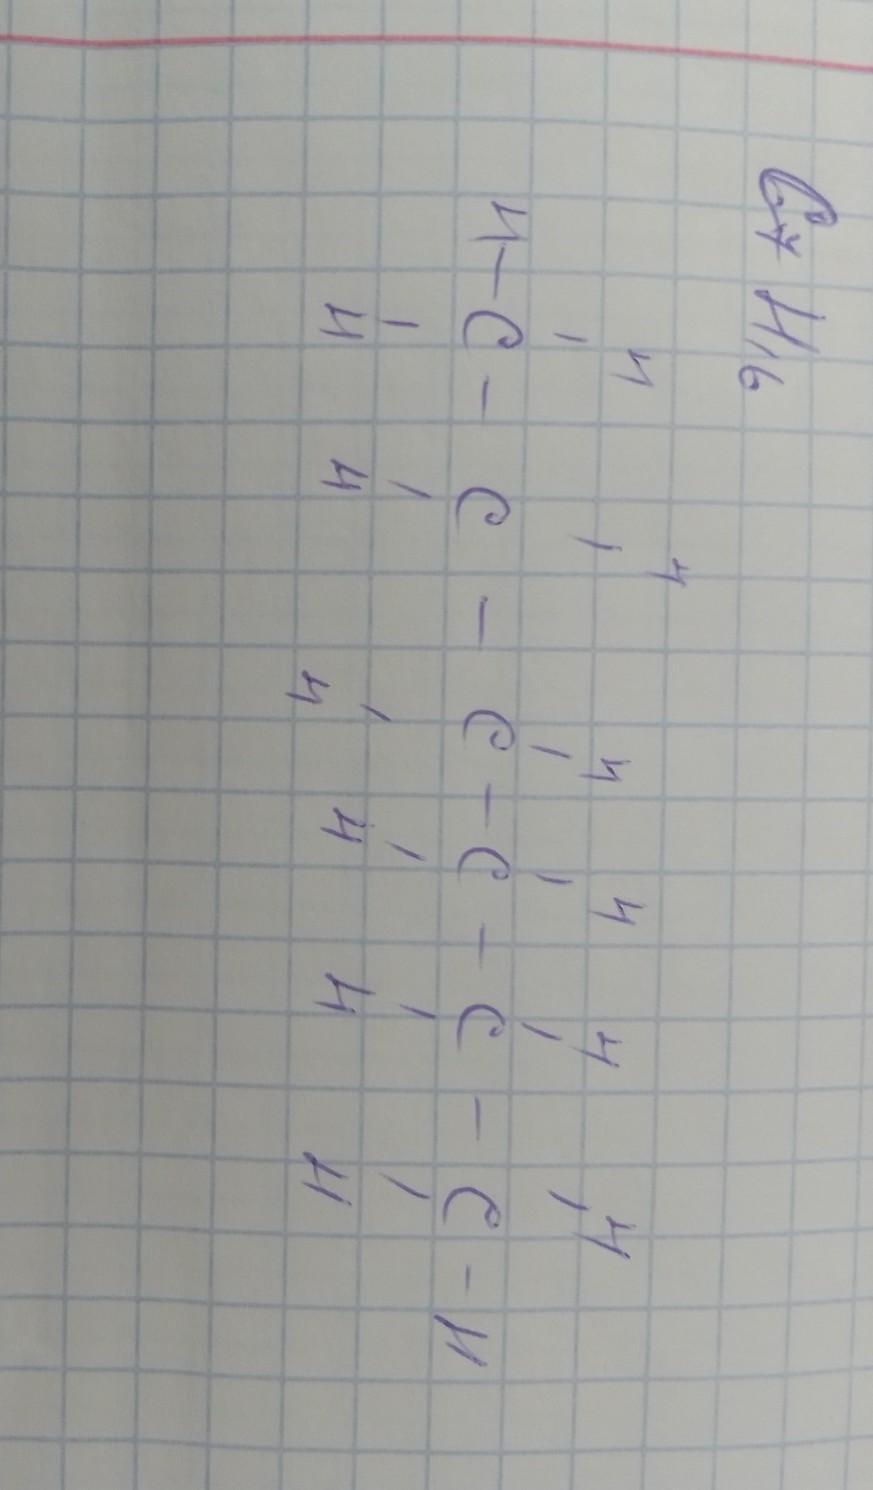 C7 H16
H H H H H H
H - C - C - C - C - C - C - H
H H H H H H